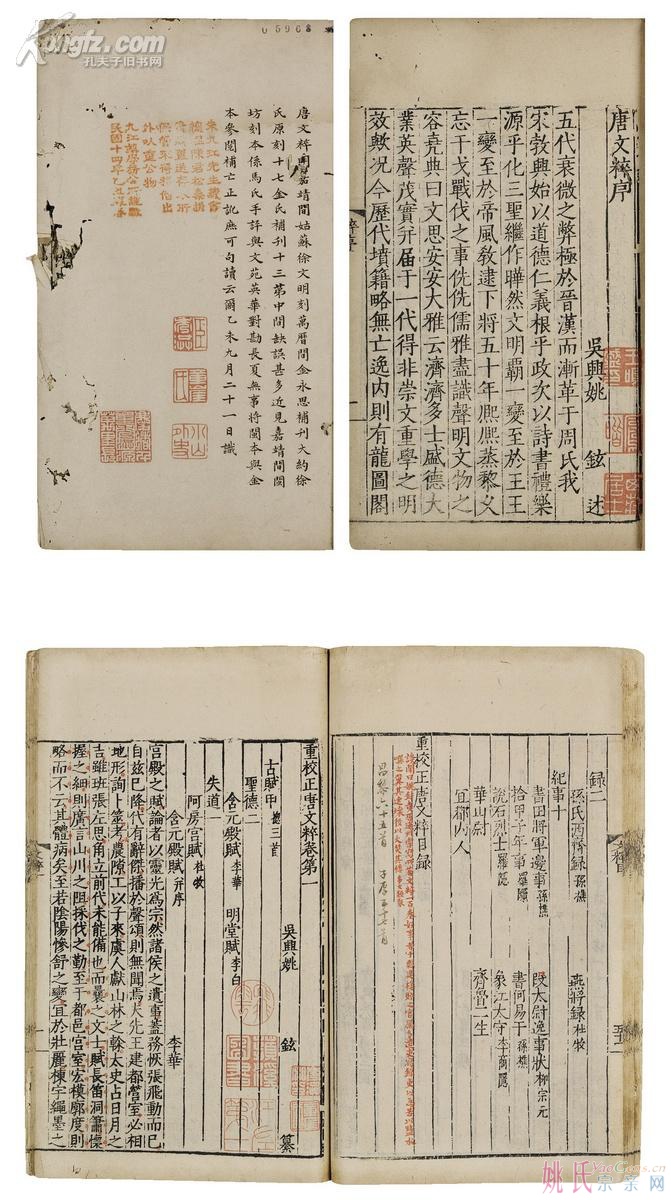 Kongfz.com
孔夫子旧书网
05968
唐文粹閩嘉靖間姑蘇徐文明刻萬曆間金永思補刊大約徐
氏原刻十七金氏補刊十三第中間缺誤甚多近見嘉靖間閩
坊刻本係馬氏手評與文苑英華對勘長夏無事將閩本與金
本參閱補亡正訛庶可句讀云爾乙未九月二十一日識
朱九江先生藏書
民國十四年乙丑
唐文粹序
吳興姚
鉉
述
五代衰微之弊極於晉漢而漸革于周氏我
宋敦興始以道德仁義根乎政次以詩書禮樂
源乎化三聖繼作曄然文明霸一變至於王王
一變至於帝風教逮下將五十年熙熙蒸黎乂
忘干戈戰伐之事侁侁儒雅盡識聲明文物之
容堯典曰文思安安大雅云濟濟多士盛德大
業英聲茂實并届于一代得非崇文重學之明
效歟況今歷代墳籍略無亡逸內則有龍圖閣
錄二
孫氏西齋錄孫樵
燕將錄杜牧
紀事十
書田將軍邊事孫樵
段太尉逸事狀柳宗元
拾甲子年事羅隱
書何易于孫樵
說石烈士羅隱
象江太守李商隱
華山尉
齊魯二生
宜都內人
重校正唐文粹目錄
重校正唐文粹卷第一
吳興姚
鉉
纂
古賦甲 總三首
聖德二
含元殿賦李華
明堂賦李白
失道一
阿房宮賦杜牧
含元殿賦并序
李華
宮殿之賦論者以靈光為宗然諸侯之遺事蓋務恢張飛動而已
自茲已降代有辭傑播於聲頌則無聞焉夫先王建都營室必相
地形詢卜筮考農隙工以子來虞人獻山林之榦太史占日月之
吉雖班張左思角立前代未能備也而襄之文士賦長笛洞簫懷
握之細則廣言山川之阻採伐之勤至于都邑宮室宏模廓度則
略而不云其體病矣至若陰陽慘舒之變宜於壯麗棟宇繩墨之
姚氏宗亲网